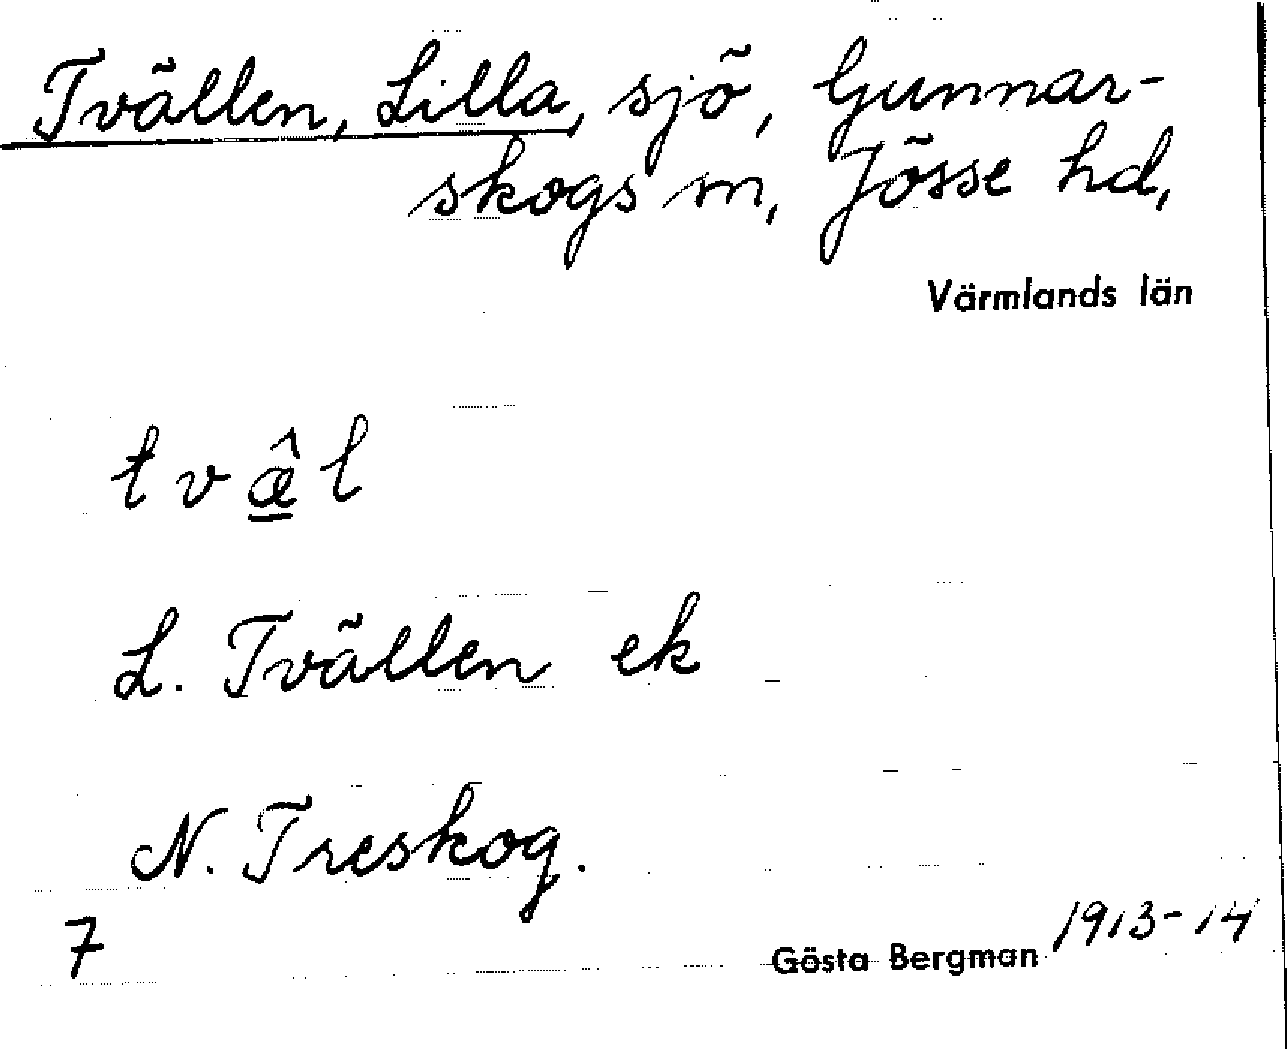 Tvällen, Lilla, sjö, Gunnar-
skogs sn, Jösse hd,
Värmlands län
t v æ̂ l
L. Tvällen ek
N. Treskog.
7
Gösta Bergman 1913-14